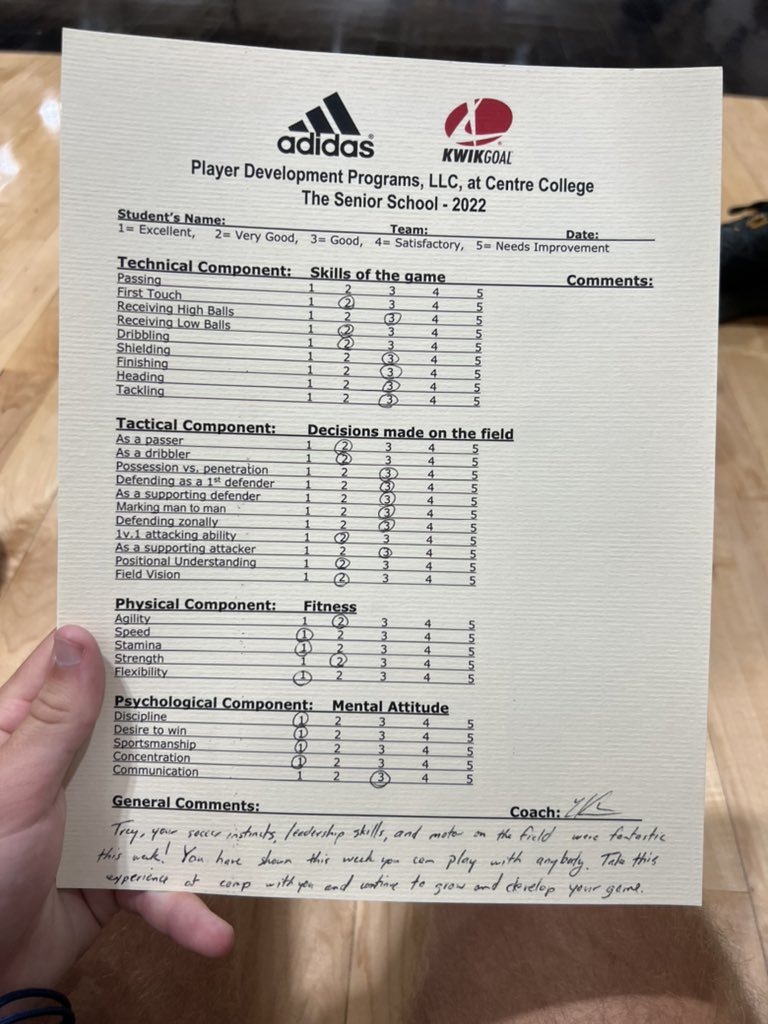 adidas®
KWIKGOAL
Player Development Programs, LLC, at Centre College
The Senior School - 2022
Student's Name: Team: Date:
1= Excellent, 2= Very Good, 3= Good, 4= Satisfactory, 5= Needs Improvement
Technical Component: Skills of the game Comments:
Passing 1 2 3 4 5
First Touch 1 2 3 4 5
Receiving High Balls 1 2 3 4 5
Receiving Low Balls 1 2 3 4 5
Dribbling 1 2 3 4 5
Shielding 1 2 3 4 5
Finishing 1 2 3 4 5
Heading 1 2 3 4 5
Tackling 1 2 3 4 5
Tactical Component: Decisions made on the field
As a passer 1 2 3 4 5
As a dribbler 1 2 3 4 5
Possession vs. penetration 1 2 3 4 5
Defending as a 1st defender 1 2 3 4 5
As a supporting defender 1 2 3 4 5
Marking man to man 1 2 3 4 5
Defending zonally 1 2 3 4 5
1v.1 attacking ability 1 2 3 4 5
As a supporting attacker 1 2 3 4 5
Positional Understanding 1 2 3 4 5
Field Vision 1 2 3 4 5
Physical Component: Fitness
Agility 1 2 3 4 5
Speed 1 2 3 4 5
Stamina 1 2 3 4 5
Strength 1 2 3 4 5
Flexibility 1 2 3 4 5
Psychological Component: Mental Attitude
Discipline 1 2 3 4 5
Desire to win 1 2 3 4 5
Sportsmanship 1 2 3 4 5
Concentration 1 2 3 4 5
Communication 1 2 3 4 5
General Comments: Coach:
Trey, your soccer instincts, leadership skills, and motor on the field were fantastic
this week! You have shown this week you can play with anybody. Take this
experience at camp with you and continue to grow and develop your game.